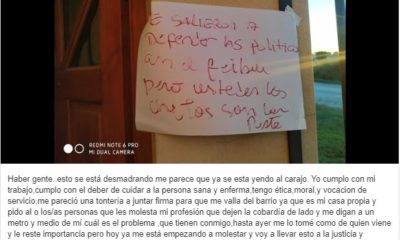 E SALIERON A
Defendo los politico
an el feibu
pero ustedes los
son la
Peste
REDMI NOTE 6 PRO
MI DUAL CAMERA
Haber gente..esto se está desmadrando me parece que ya se esta yendo al carajo. Yo cumplo con mi
trabajo,cumplo con el deber de cuidar a la persona sana y enferma,tengo ética,moral,y vocacion de
servicio,me pareció una tontería a juntar firma para que me valla del barrio ya que es mi casa propia y
pido al o los/as personas que les molesta mi profesión que dejen la cobardía de lado y me digan a un
metro y medio de mí cuál es el problema ,que tienen conmigo,hasta ayer me lo tomé como de quien viene y
le reste importancia pero hoy ya me está empezando a molestar y voy a llevar esto a la justicia y